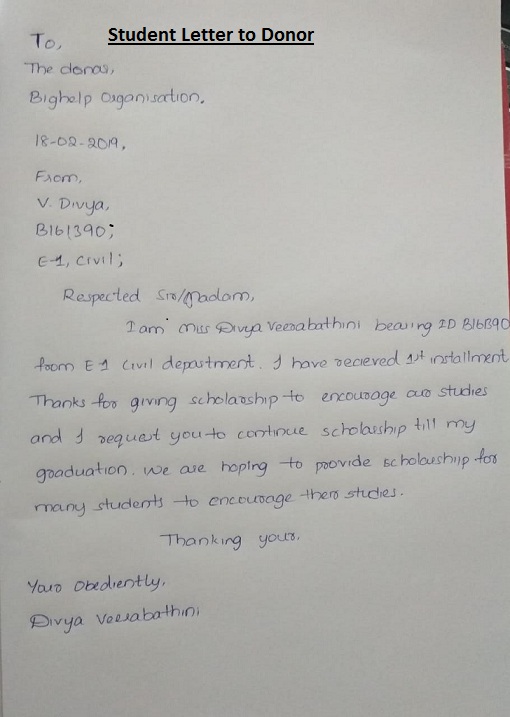 Student Letter to Donor
To,
The donas,
Bighelp Organisation.
18-02-2019,
From,
V. Divya,
B161390;
E-1, Civil;
Respected Sir/Madam,
I am Miss Divya Veerabathini bearing ID B161390
from E1 Civil department. I have recieved 1st installment
Thanks for giving scholarship to encourage our studies
and I request you to continue scholarship till my
graduation. We are hoping to provide scholarship for
many students to encourage there studies.
Thanking your.
Your Obediently,
Divya Veerabathini